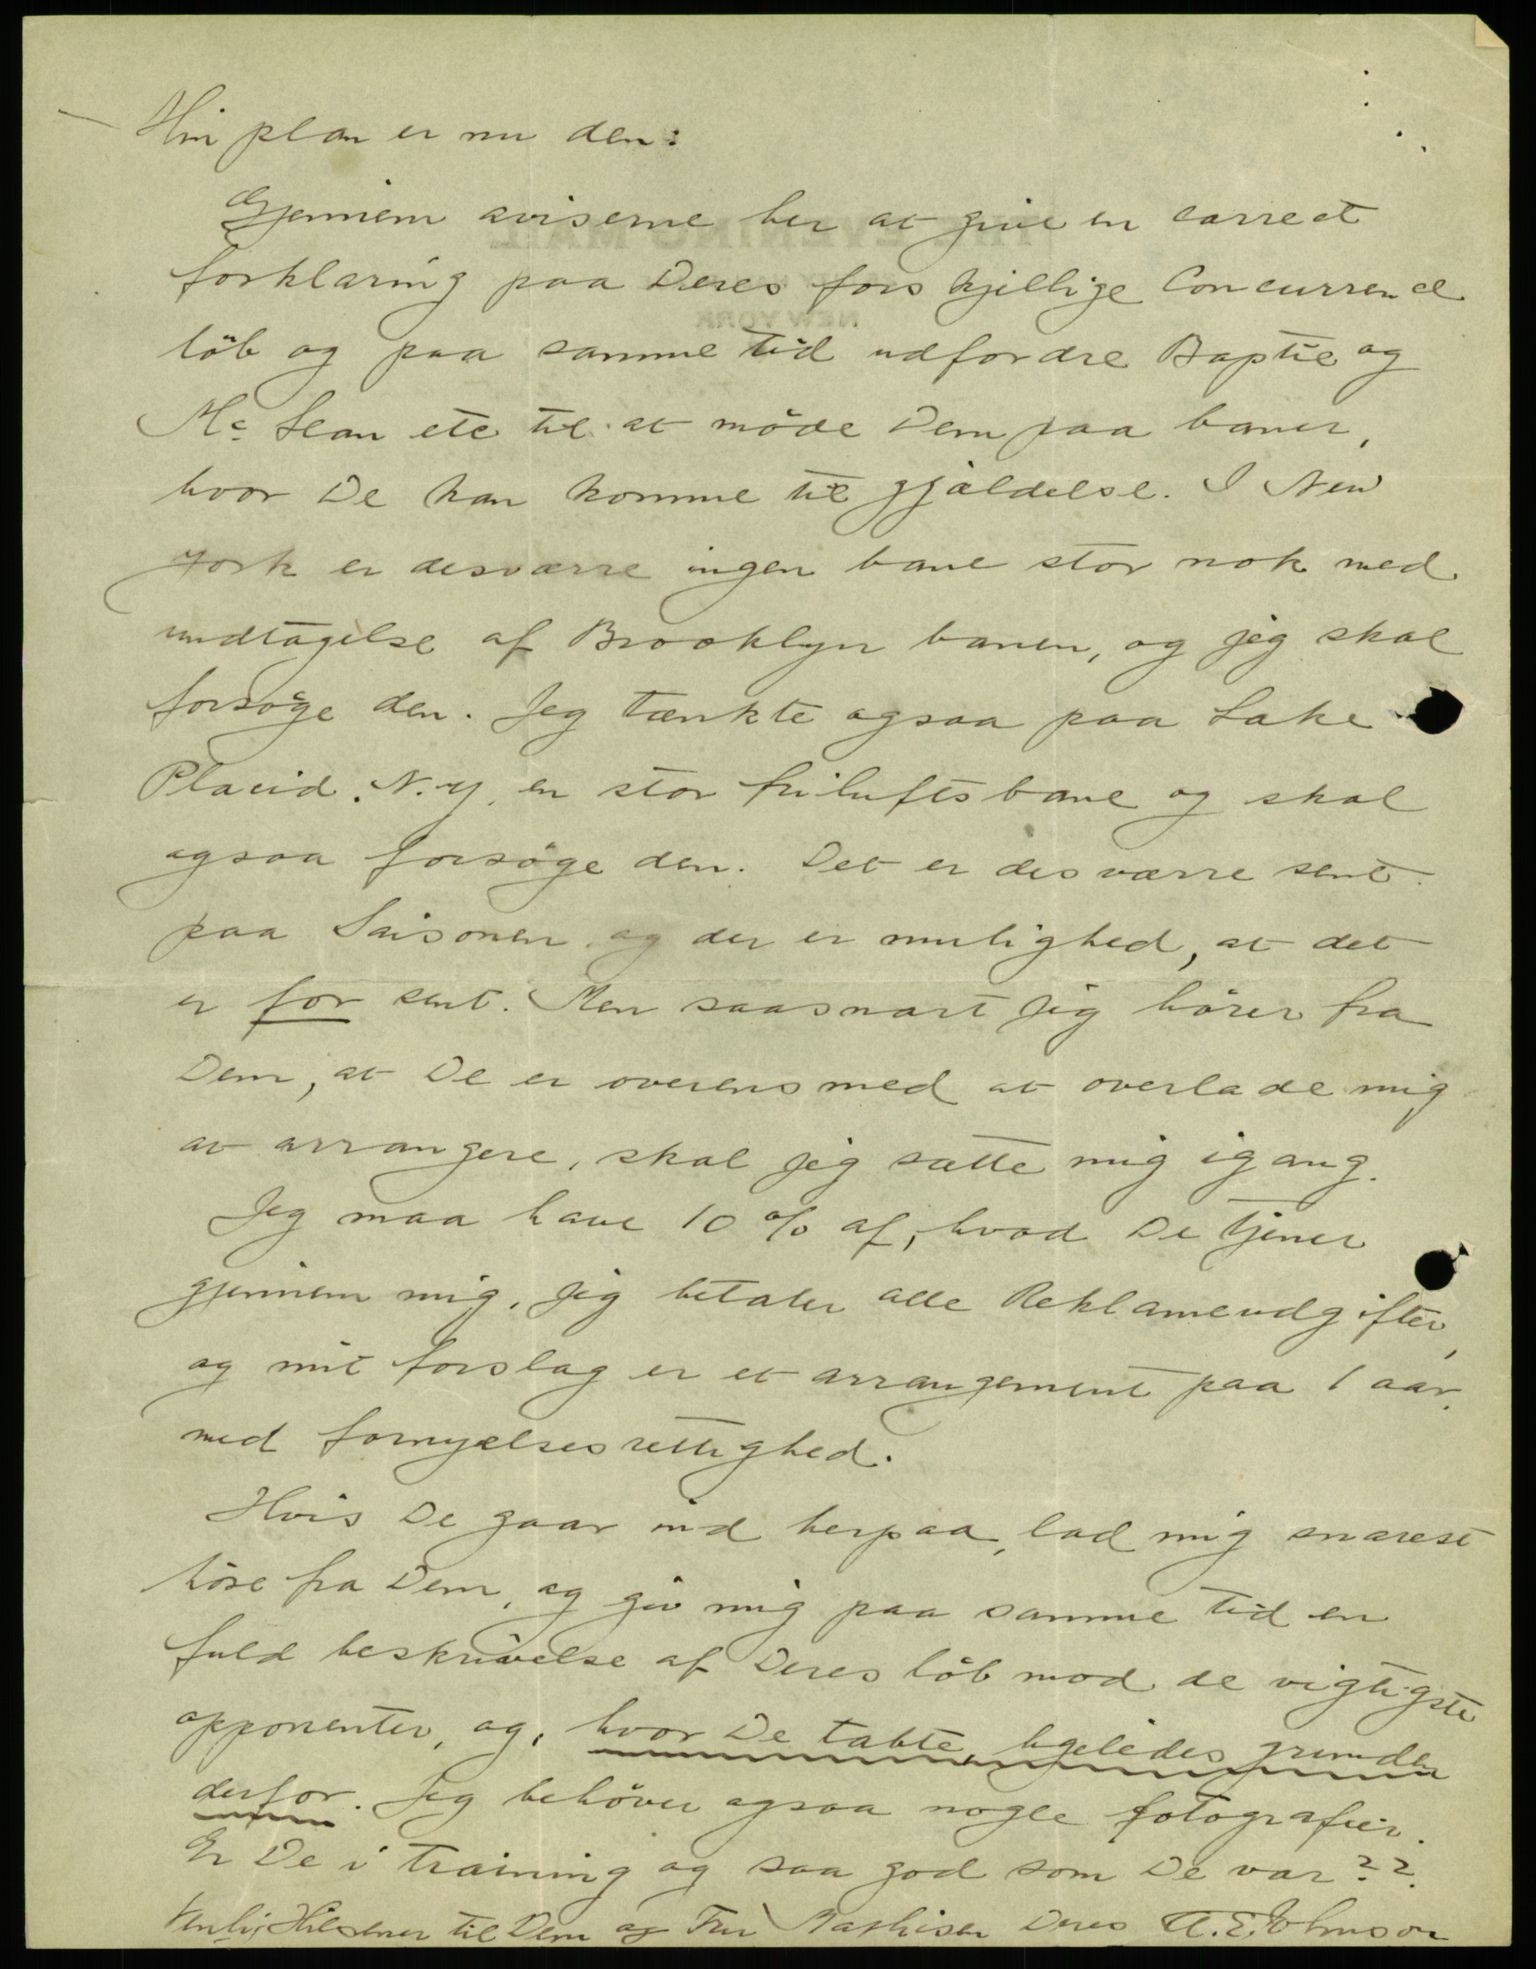 Min plan er nu den:
Gjennem aviserne her at give en correct
forklaring paa Deres forskjellige Concurrence
löb og paa samme tid udfordre Baptie og
Mc Lean etc til at möde Dem paa baner,
hvor De kan komme til gjældelse. I New
York er desværre ingen bane stor nok med
undtagelse af Brooklyn banen, og jeg skal
forsöge den. Jeg tænkte ogsaa paa Lake
Placid. N.Y. en stor friluftsbane og skal
ogsaa forsöge den. Det er desværre sent
paa Saisonen og der er mulighed, at det
er for sent. Men saasnart jeg hörer fra
Dem, at De er overens med at overlade mig
at arrangere, skal jeg sætte mig igang.
Jeg maa have 10 % af, hvad De tjener
gjennem mig, jeg betaler alle Reklameudgifter,
og mit forslag er et arrangement paa 1 aar.
med fornyelsesrettighed.
Hvis De gaar ind herpaa, lad mig snarest
höre fra Dem, og giv mig paa samme tid en
fuld beskrivelse af Deres löb mod de vigtigste
opponenter, og, hvor De tabte, ligeledes grunden
derfor. Jeg behöver ogsaa nogle fotografier.
Er De i training og saa god som De var??
Venlig Hilsener til Dem og Fru Mathisen Deres A.E. Johnson
EVENING MAIL
NEW YORK